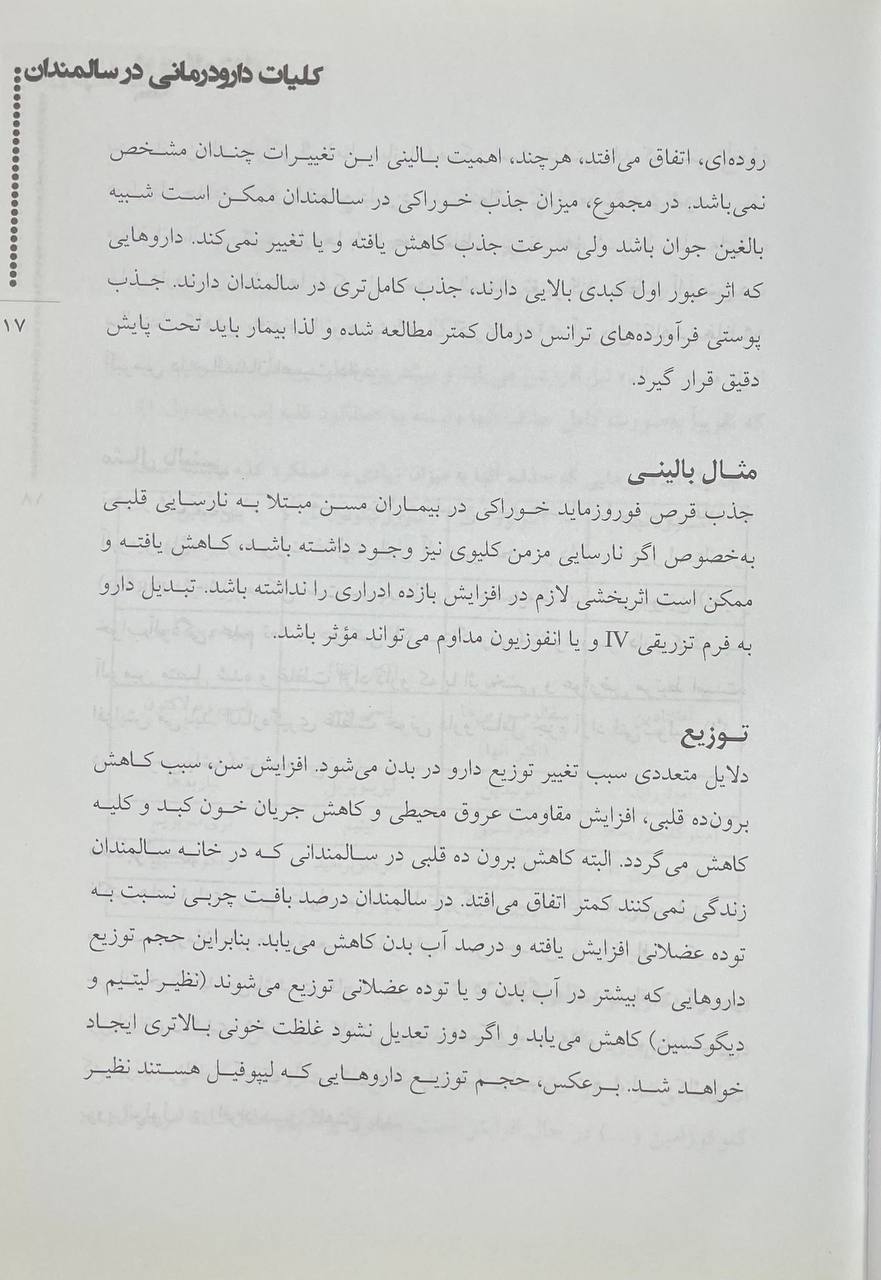 کلیات دارودرمانی در سالمندان
۱۷
روده‌ای، اتفاق می‌افتد، هرچند، اهمیت بالینی این تغییرات چندان مشخص
نمی‌باشد. در مجموع، میزان جذب خوراکی در سالمندان ممکن است شبیه
بالغین جوان باشد ولی سرعت جذب کاهش یافته و یا تغییر نمی‌کند. داروهایی
که اثر عبور اول کبدی بالایی دارند، جذب کامل‌تری در سالمندان دارند. جذب
پوستی فرآورده‌های ترانس درمال کمتر مطالعه شده و لذا بیمار باید تحت پایش
دقیق قرار گیرد.
مثال بالینی
جذب قرص فوروزماید خوراکی در بیماران مسن مبتلا به نارسایی قلبی
به‌خصوص اگر نارسایی مزمن کلیوی نیز وجود داشته باشد، کاهش یافته و
ممکن است اثربخشی لازم در افزایش بازده ادراری را نداشته باشد. تبدیل دارو
به فرم تزریقی IV و یا انفوزیون مداوم می‌تواند مؤثر باشد.
توزیع
دلایل متعددی سبب تغییر توزیع دارو در بدن می‌شود. افزایش سن، سبب کاهش
برون‌ده قلبی، افزایش مقاومت عروق محیطی و کاهش جریان خون کبد و کلیه
کاهش می‌گردد. البته کاهش برون ده قلبی در سالمندانی که در خانه سالمندان
زندگی نمی‌کنند کمتر اتفاق می‌افتد. در سالمندان درصد بافت چربی نسبت به
توده عضلانی افزایش یافته و درصد آب بدن کاهش می‌یابد. بنابراین حجم توزیع
داروهایی که بیشتر در آب بدن و یا توده عضلانی توزیع می‌شوند (نظیر لیتیم و
دیگوکسین) کاهش می‌یابد و اگر دوز تعدیل نشود غلظت خونی بالاتری ایجاد
خواهد شد. برعکس، حجم توزیع داروهایی که لیپوفیل هستند نظیر